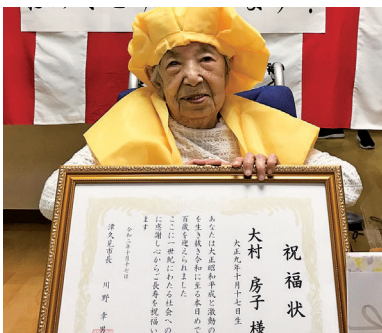 祝福状
大村 房子 様
大正九年十月十七日生
あなたは大正昭和平成と激動の
を生き抜き令和に至る本日めで
百歳を迎えられました
ここに一世紀にわたる社会への
に感謝し心からご長寿を祝福い
ます
令和二年十月十七日
津久見市長 川野 幸男